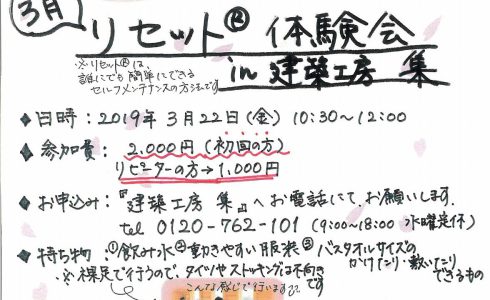 3月
リセット® 体験会
in 建築工房 集
※リセット®は、
誰にでも簡単にできる
セルフメンテナンスの方法です
◆日時：2019年3月22日(金) 10:30～12:00
◆参加費：2,000円(初回の方)
リピーターの方→1,000円
◆お申込み：『建築工房 集』へお電話にて、お願いします。
tel 0120-762-101 (9:00～18:00 水曜定休)
◆持ち物：①飲み水②動きやすい服装③バスタオルサイズの
かけたり・敷いたり
できるもの
※裸足で行うので、タイツやストッキングは不向き
です
こんな感じで行います